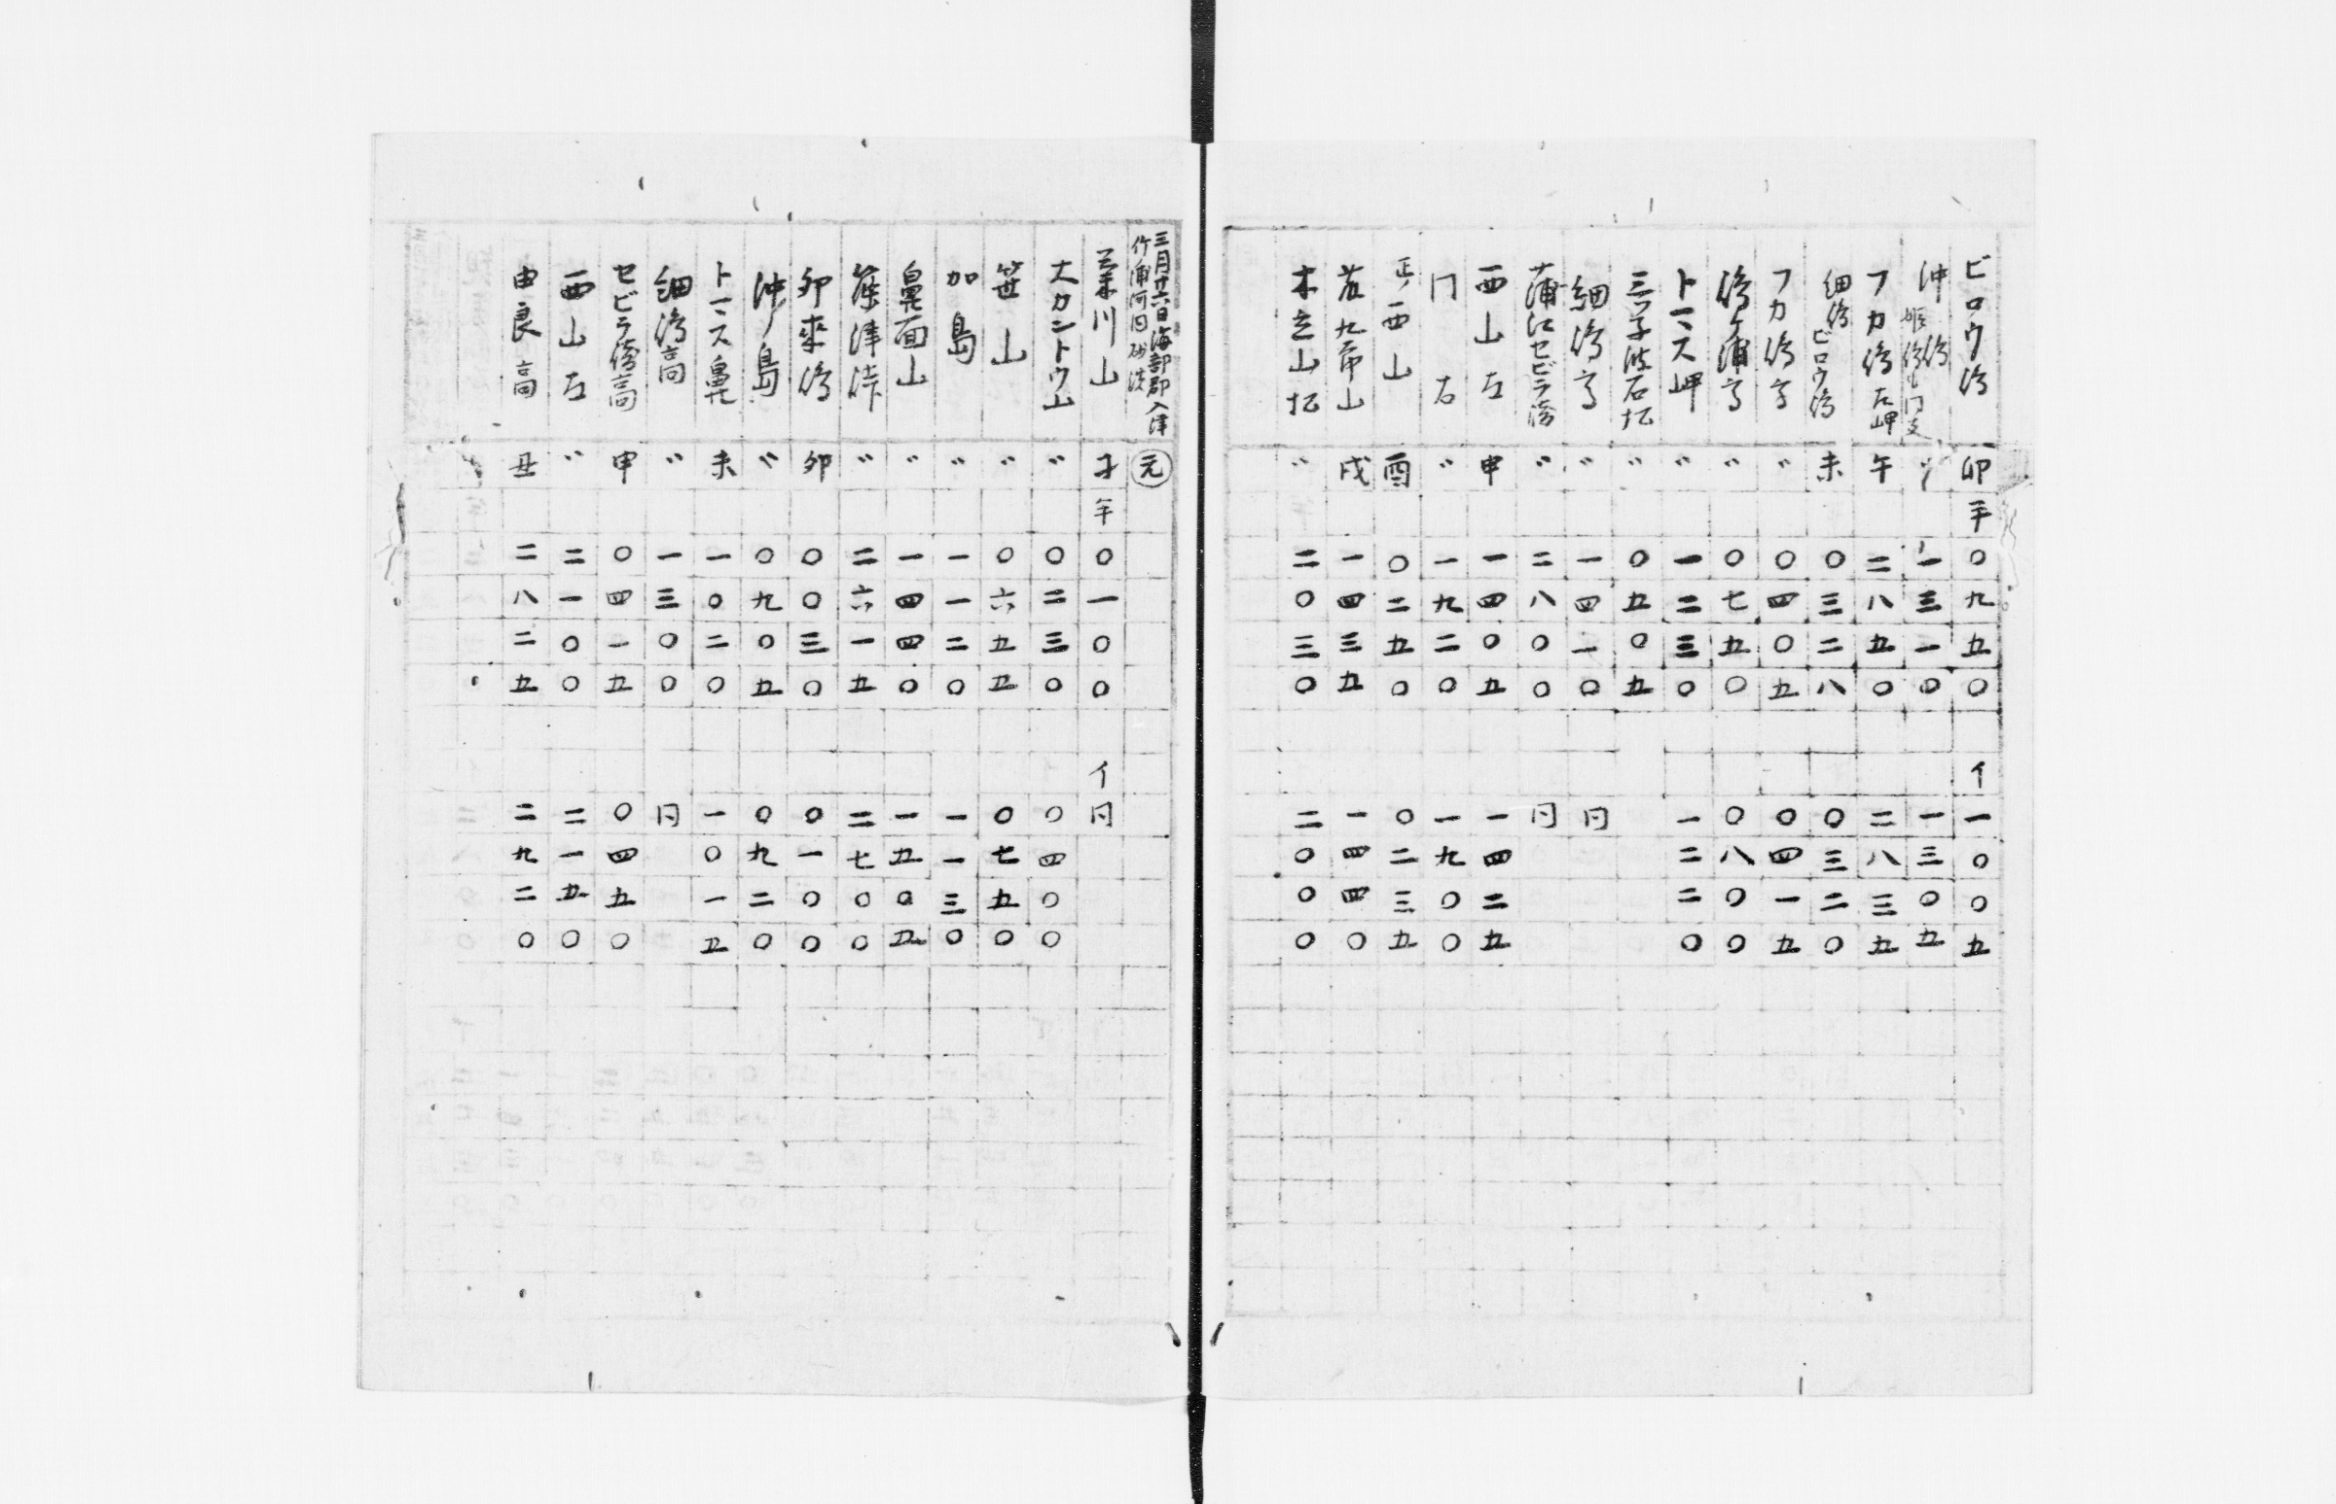 ビロウ 卯 半 〇九五〇 イ 一〇〇五
沖 〃 一三一〇 一三〇五
フカ 左岬 午 二八五〇 二八三五
細 ビロウ 未 〇三二八 〇三二〇
フカ 〃 〇四〇五 〇四一五
浦 〃 〇七五〇 〇八〇〇
岬 〃 一二三〇 一二二〇
三ツ子波石 〃 〇五〇五
細 〃 一四一〇 同
蒲江セビラ 〃 二八〇〇 同
西山左 申 一四〇五 一四二五
门右 〃 一九二〇 一九〇〇
正ノ西山 酉 〇二五〇 〇二三五
山 戌 一四三五 一四四〇
木立山 〃 二〇三〇 二〇〇〇
三月廿六日海部郡入津 元
竹浦河内
川山 子 半 〇一〇〇 イ 同
大カントウ山 〃 〇二三〇 〇四〇〇
笹山 〃 〇六五五 〇七五〇
加島 〃 一一二〇 一一三〇
鼻面山 〃 一四四〇 一五〇五
津峠 〃 二六一五 二七〇〇
卯来 卯 〇〇三〇 〇一〇〇
沖ノ島 〃 〇九〇五 〇九二〇
鼻 未 一〇二〇 一〇一五
細 高 〃 一三〇〇 同
セビラ 高 申 〇四一五 〇四五〇
西山左 〃 二一〇〇 二一五〇
由良 高 丑 二八二五 二九二〇